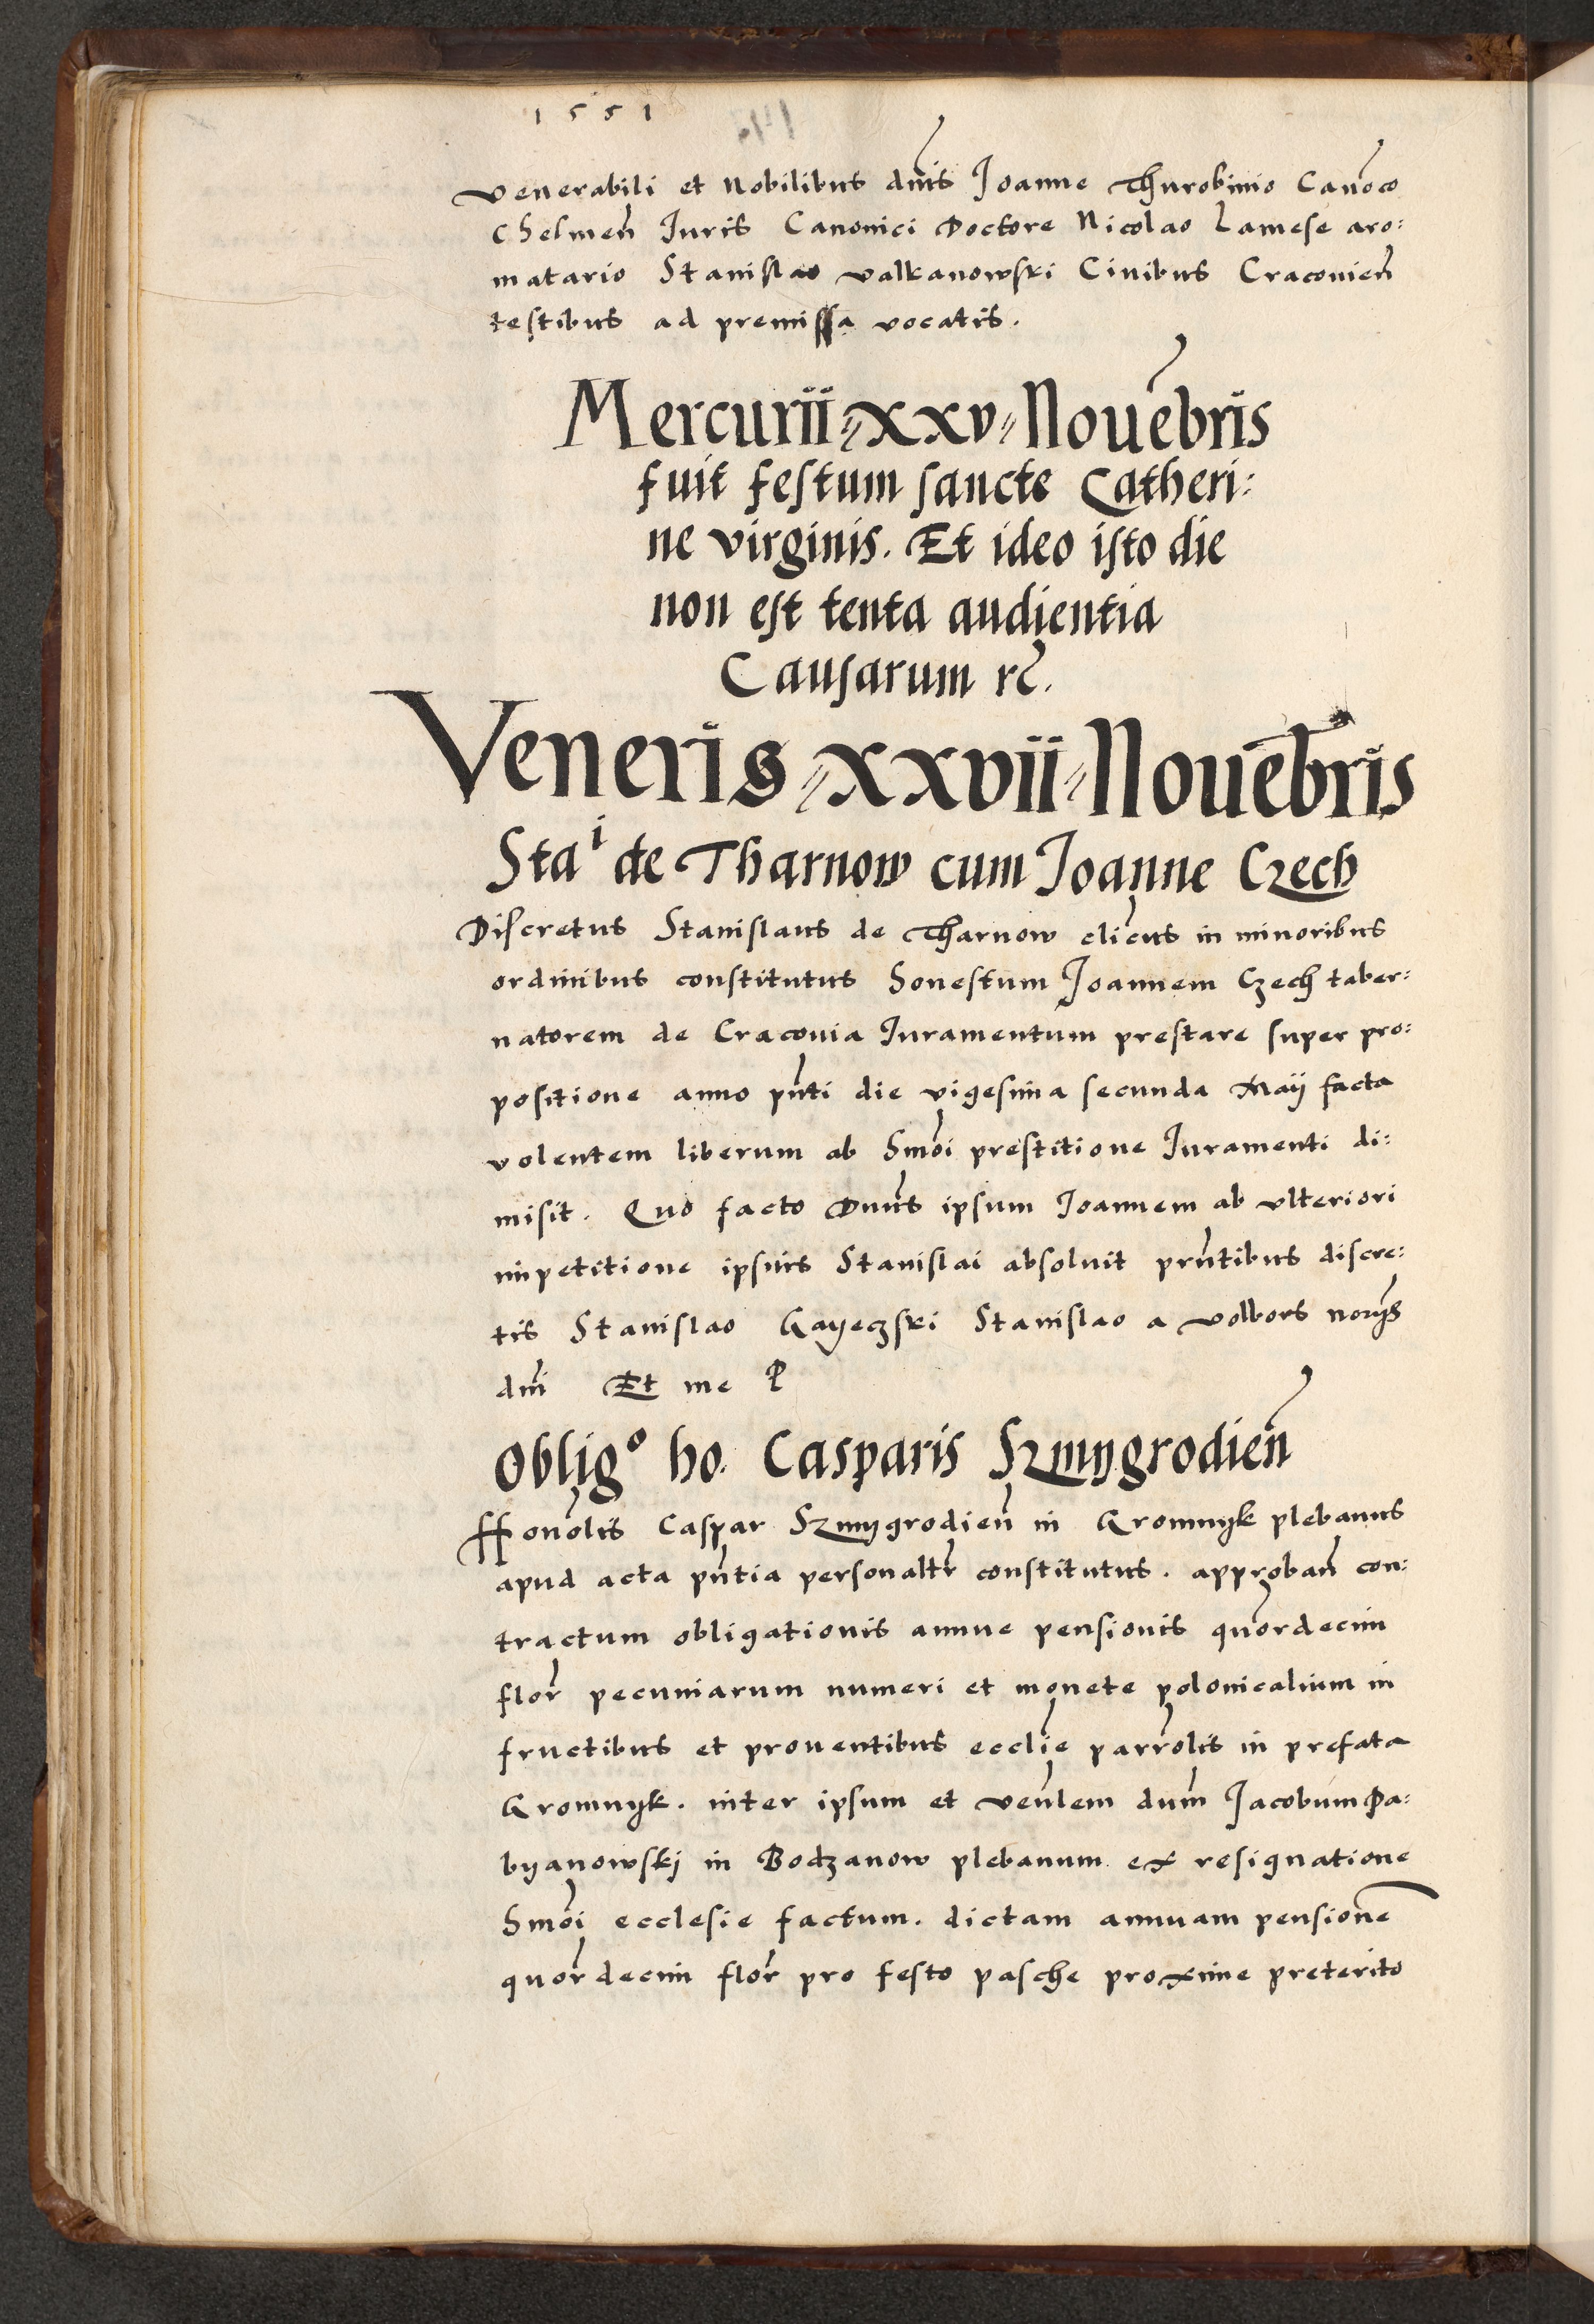 1551
Venerabili et Nobilibus dnīs Joanne Thurobinio Canōco
Chelmen̄ Juris Canonici Doctore Nicolao Lamese aro:
matario Stanislao Valkanowski Ciuibus Cracouien̄
testibus ad premissa vocatis.
Mercurii xxv Nouēbris
fuit festum sancte Catheri:
ne virginis. Et ideo isto die
non est tenta audientia
Causarum rc̄.
Veneris xxvii Nouēbris
Staⁱ de Tharnow cum Joanne Czech
Discretus Stanislaus de Tharnow clīcus in minoribus
ordinibus constitutus honestum Joannem Czech taber:
natorem de Cracouia Juramentum prestare super pro:
positione anno pn̄ti die vigesima secunda Maij facta
volentem liberum ab hmōi prestitione Juramenti di:
misit. Quo facto Dnūs ipsum Joannem ab vlteriori
impetitione ipsius Stanislai absoluit prn̄tibus discre:
tis Stanislao Gayeczski Stanislao a Volbors norijs
dnī Et me
Obligᵒ ho. Casparis Szmygrodien̄
Honōlis Caspar Szmygrodien̄ in Gromnyk plebanus
apud acta pn̄tia personaltr̄ constitutus. approban̄ con:
tractum obligationis annue pensionis quōrdecim
flor̄ pecuniarum numeri et monete polonicalium in
fructibus et prouentibus ecclīe parrōlis in prefata
Gromnyk. inter ipsum et Ven̄lem dnūm Jacobum Pa:
byanowskj in Bodzanow plebanum ex resignatione
hmōi ecclesie factum. dictam annuam pensionē
quōrdecim flor̄ pro festo pasche proxime preterito